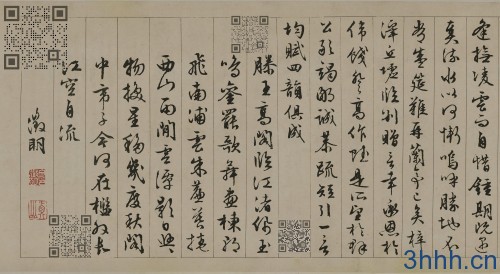 逢撫凌雲而自惜鍾期既遇
奏流水以何慚嗚呼勝地不
常盛筵難再蘭亭已矣梓
澤丘墟臨別贈言幸承恩於
偉餞登高作賦是所望於群
公敢竭鄙誠恭疏短引一言
均賦四韻俱成
滕王高閣臨江渚佩玉
鳴鑾罷歌舞畫棟朝
飛南浦雲朱簾暮捲
西山雨閒雲潭影日悠悠
物換星移幾度秋閣
中帝子今何在檻外長
江空自流
徵明
3hhh.cn